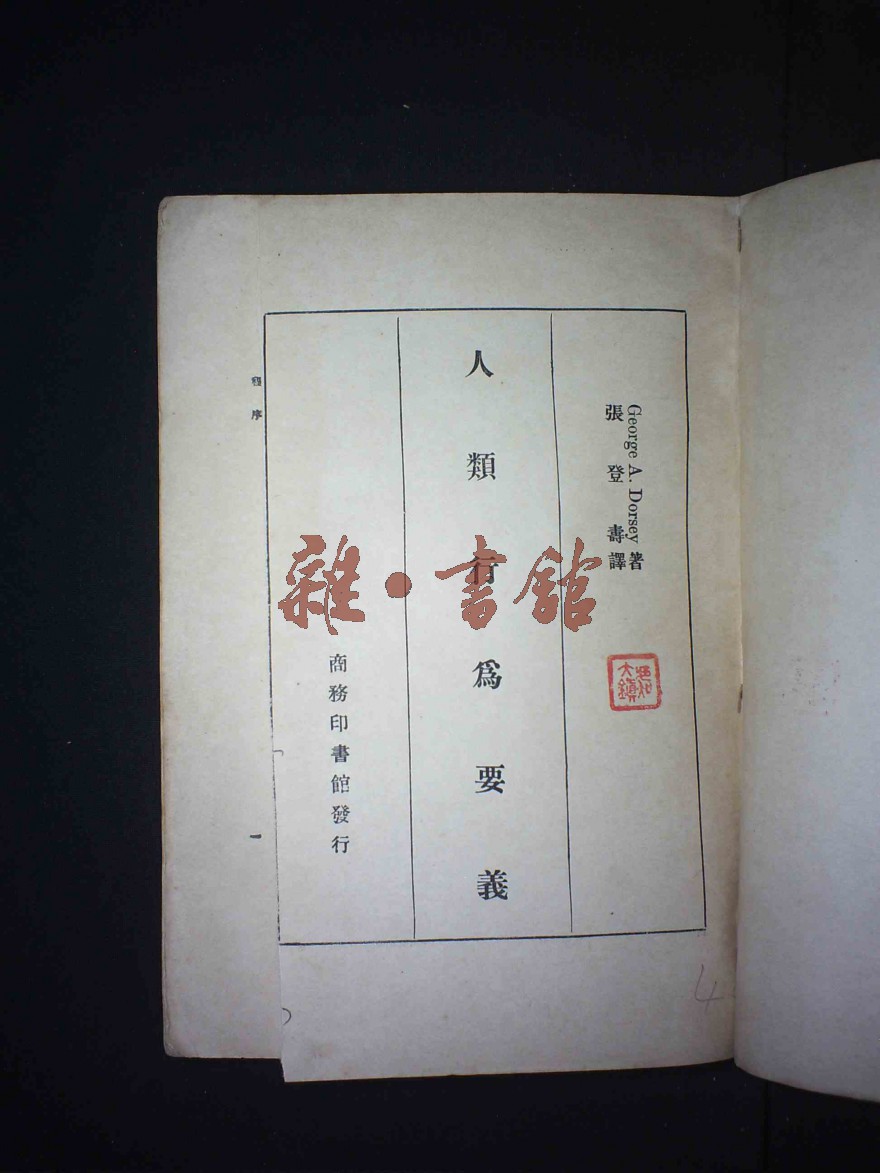 George A. Dorsey 著
張登壽譯
人類行爲要義
商務印書館發行
程序
一
雜·書館
4